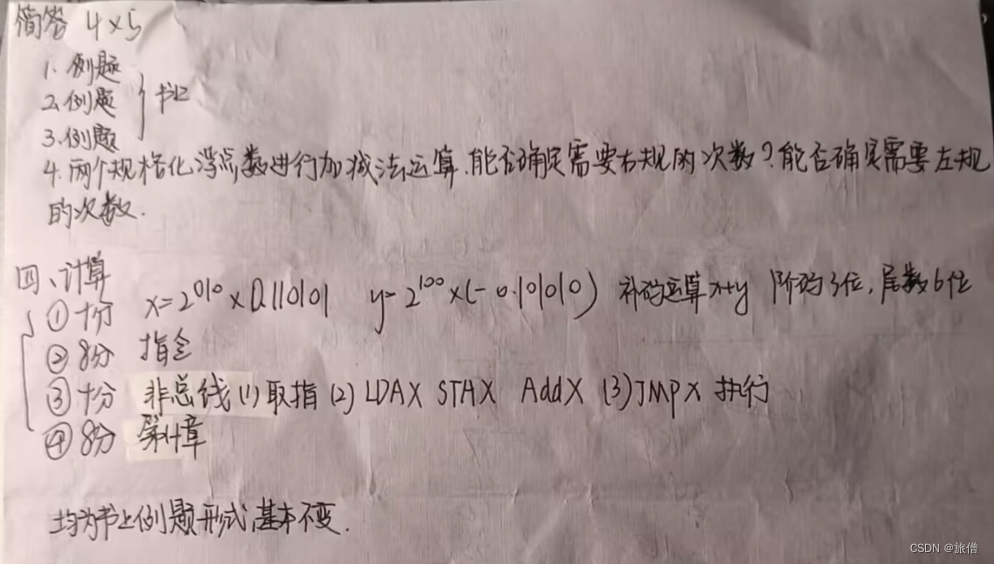 简答 4×5
1. 例题
2. 例题 } 书上
3. 例题
4. 两个规格化浮点数进行加减法运算.能否确定需要右规的次数?能否确定需要左规
的次数.
四、计算
① 十分 x=2^010×0.110101 y=2^100×(-0.101010) 补码运算x+y 阶码3位,尾数6位
② 8分 指令
③ 十分 非总线(1)取指(2) LDAX STAX AddX (3)JMPX 执行
④ 8分 第4章
均为书上例题形式,基本不变.
CSDN @旅僧